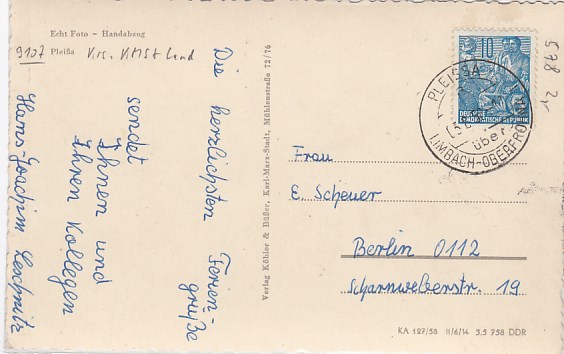 Echt Foto - Handabzug
9107 Pleißa Krs. KMSt Land
Die herzlichsten Ferien-
grüße
sendet
Ihnen und
Ihren Kollegen
Hans-Joachim
Verlag Köhler & Büßer, Karl-Marx-Stadt, Mühlenstraße 72/76
10
DEUTSCHE
DEMOKRATISCHE REPUBLIK
PLEISSA
über
LIMBACH-OBERFROHN
578 2r
Frau
E. Scheuer
Berlin 0112
Scharnweberstr. 19
KA 127/58 II/6/14 3.5 758 DDR